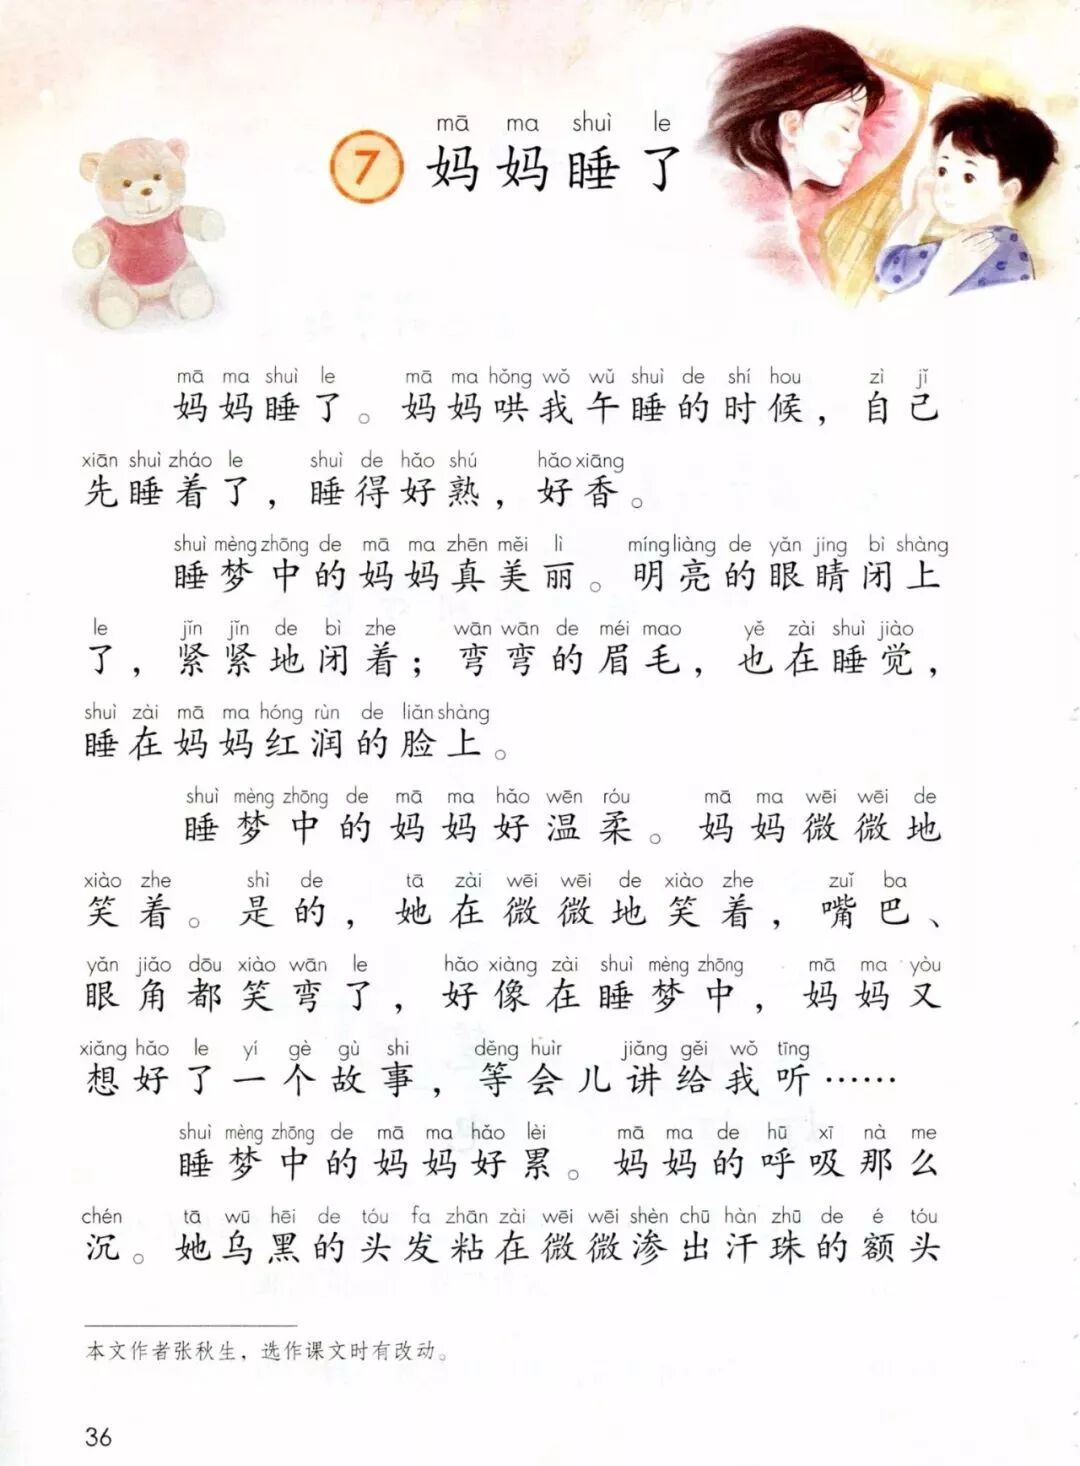 mā ma shuì le
7 妈妈睡了
mā ma shuì le mā ma hǒng wǒ wǔ shuì de shí hou zì jǐ
妈妈睡了。妈妈哄我午睡的时候，自己
xiān shuì zháo le shuì de hǎo shú hǎo xiāng
先睡着了，睡得好熟，好香。
shuì mèng zhōng de mā ma zhēn měi lì míng liàng de yǎn jing bì shàng
睡梦中的妈妈真美丽。明亮的眼睛闭上
le jǐn jǐn de bì zhe wān wān de méi mao yě zài shuì jiào
了，紧紧地闭着；弯弯的眉毛，也在睡觉，
shuì zài mā ma hóng rùn de liǎn shàng
睡在妈妈红润的脸上。
shuì mèng zhōng de mā ma hǎo wēn róu mā ma wēi wēi de
睡梦中的妈妈好温柔。妈妈微微地
xiào zhe shì de tā zài wēi wēi de xiào zhe zuǐ ba
笑着。是的，她在微微地笑着，嘴巴、
yǎn jiǎo dōu xiào wān le hǎo xiàng zài shuì mèng zhōng mā ma yòu
眼角都笑弯了，好像在睡梦中，妈妈又
xiǎng hǎo le yí gè gù shi děng huìr jiǎng gěi wǒ tīng
想好了一个故事，等会儿讲给我听……
shuì mèng zhōng de mā ma hǎo lèi mā ma de hū xī nà me
睡梦中的妈妈好累。妈妈的呼吸那么
chén tā wū hēi de tóu fa zhān zài wēi wēi shèn chū hàn zhū de é tóu
沉。她乌黑的头发粘在微微渗出汗珠的额头
本文作者张秋生，选作课文时有改动。
36